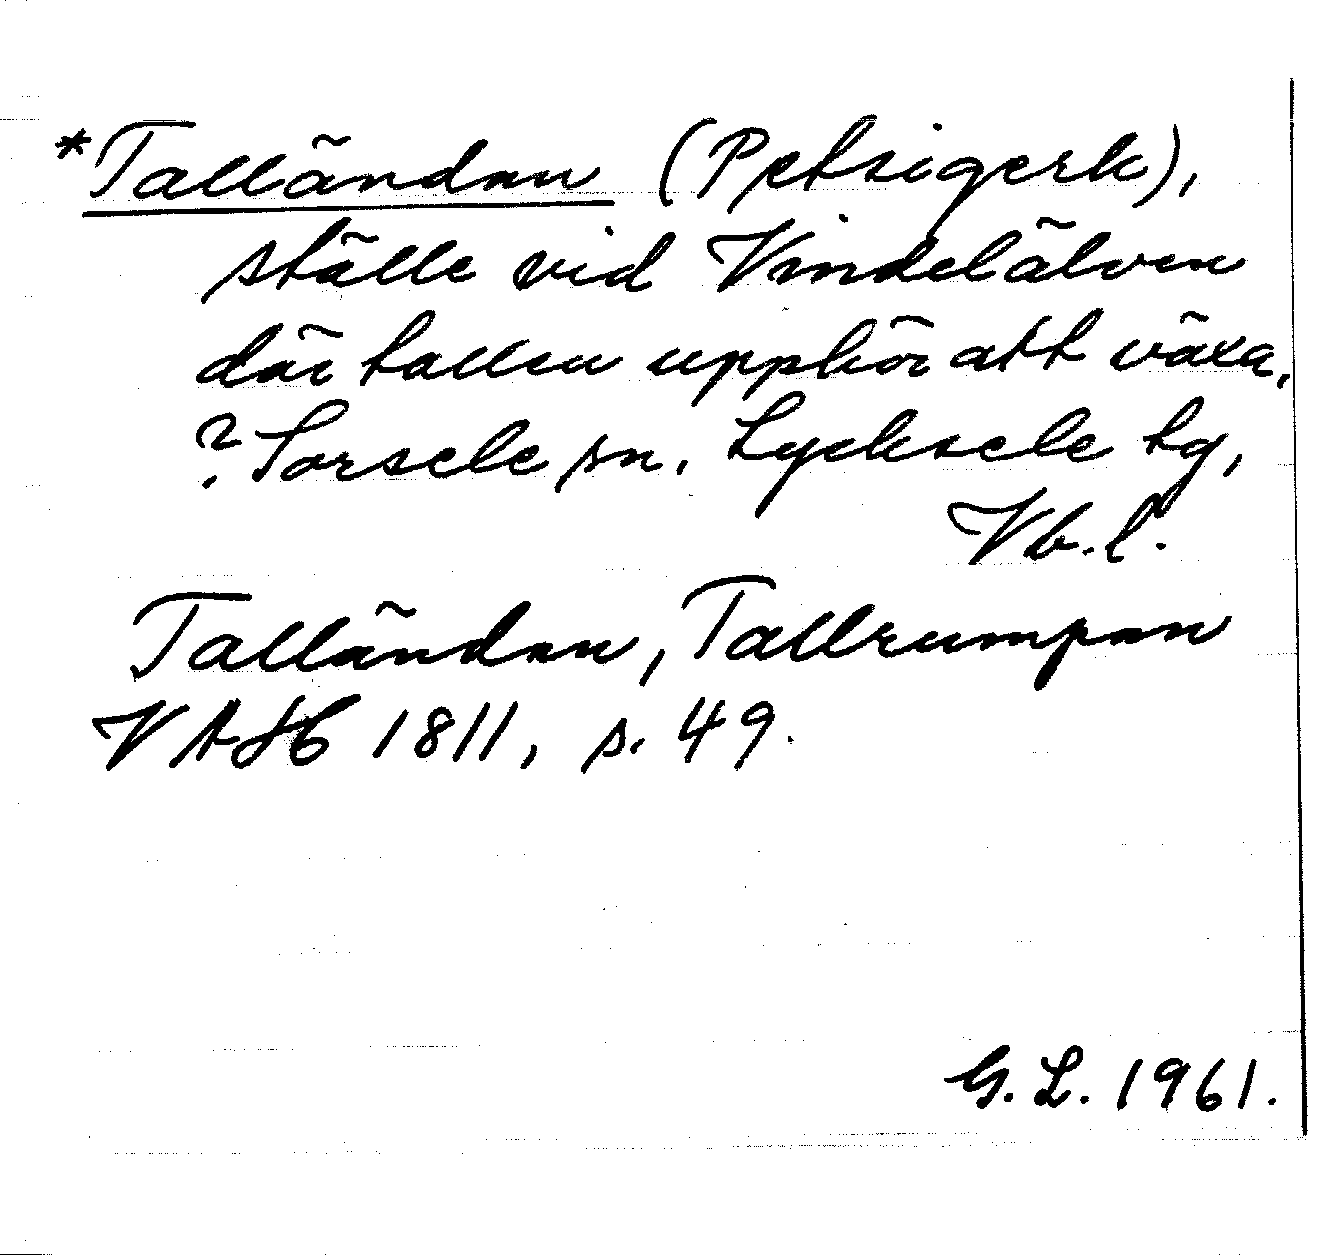 *Talländan (Petsigerk),
ställe vid Vindelälven
där tallen upphör att växa.
? Sorsele sn. Lycksele tg,
Vb.l.
Talländan, Tallrumpan
VAH 1811, s. 49.
G.L. 1961.